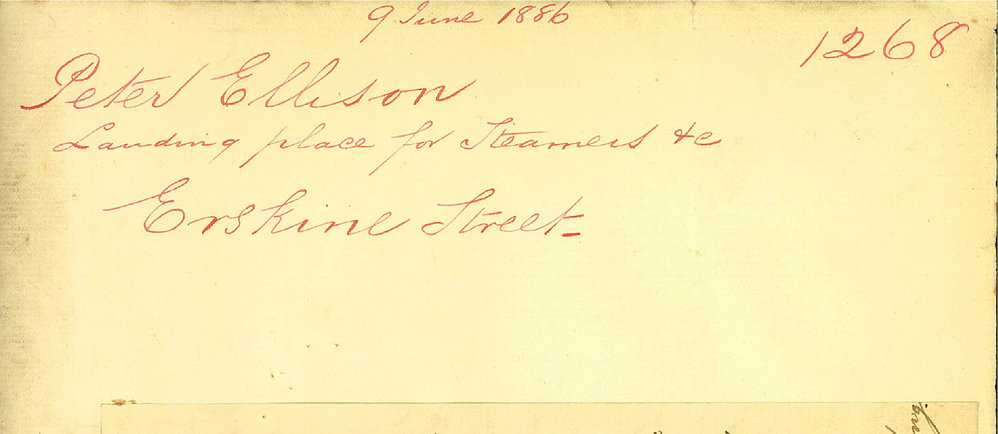 9 June 1886
1268
Peter Ellison
Landing place for Steamers &c
Erskine Street_